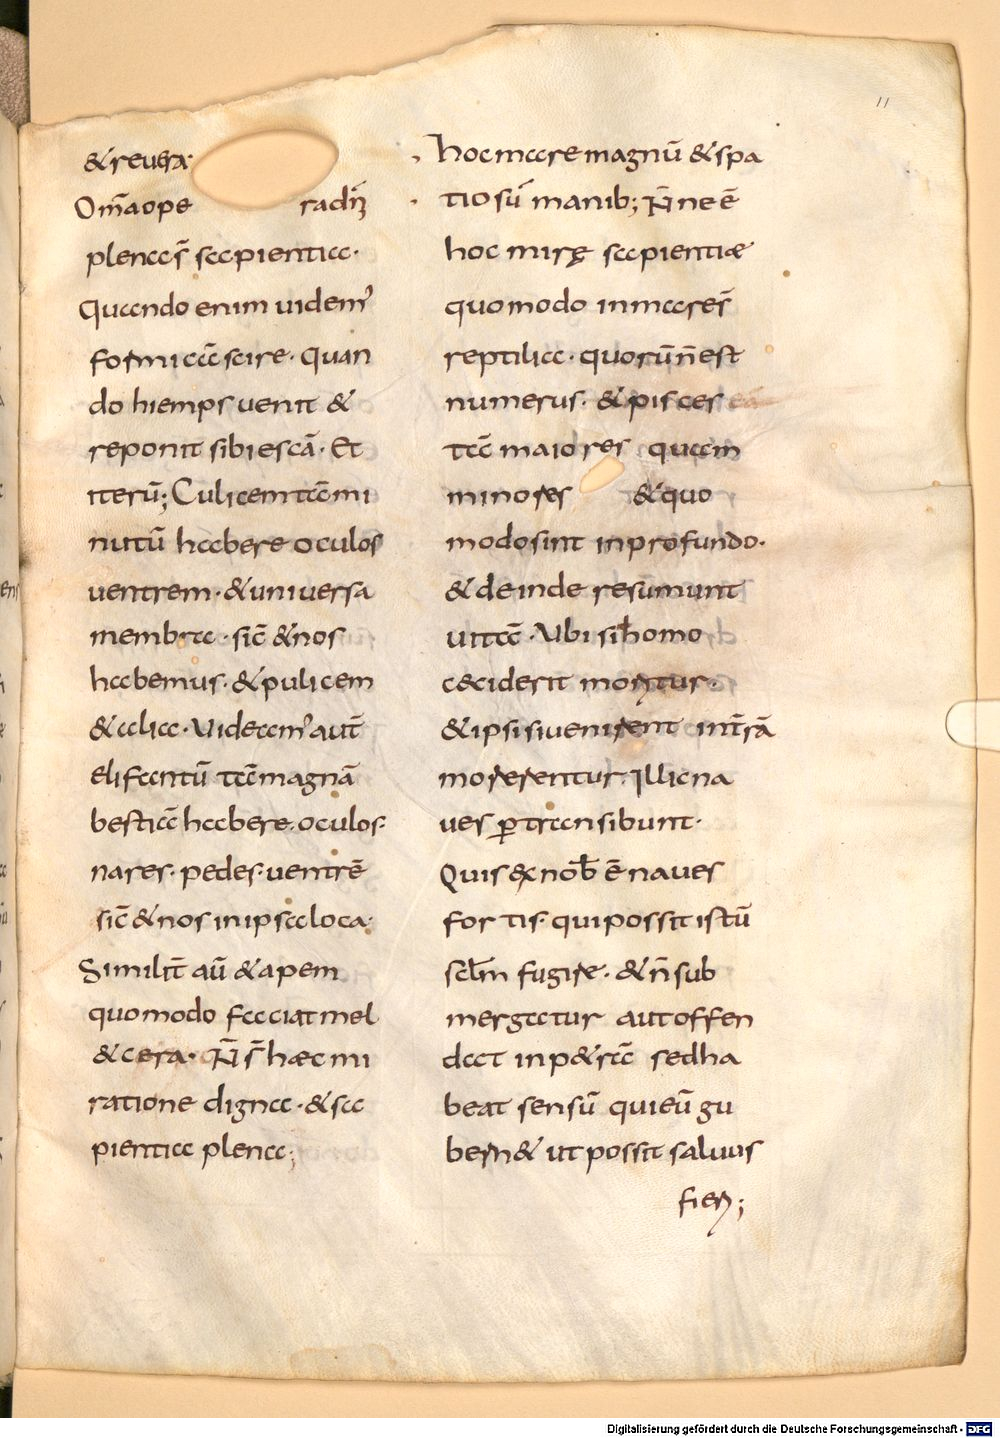 11
& reuera·
Om̄a ope radīꝫ
plena s̄ sapientia·
Quando enim uidem᾽
formica̅ scire· Quan
do hiemps uenit &
reponit sibi esca̅· Et
iteru̅; Culicem ta̅ mi
nutu̅ habere oculos
uentrem· & uniuersa
membra· sic̅ & nos
habemus· & pulicem
& alia· Uideam᾽ aut̅
elifantu̅ ta̅ magna̅
bestia̅ habere· oculos·
nares· pedes· uentre̅
sic̅ & nos in ipsa loca·
Similit̅ au̅ & apem
quomodo faciat mel
& cera· N̄ s̄ haec mi
ratione digna· & sa
pientia plena;
hoc mare magnu̅ & spa
tiosu̅ manib; N̄ne e̅
hoc mirę sapientiæ
quomodo in mare s̄
reptilia· quoru̅ n̄ est
numerus· & pisces
ta̅ maiores quam
minores & quo
modo sint in profundo·
& deinde resumunt
uita̅· Ubi si homo
c&iderit moritur·
& ipsi si uenirent in t̅ra̅
morerentur· Illic na
ues ꝑ transibunt·
Quis ex nob̅ e̅ naues
fortis· qui possit istu̅
sc̅lm fugire· & n̄ sub
mergatur aut offen
dat in p&ra̅ sed ha
beat sensu̅ qui eu̅ gu
bern& ut possit saluus
fieri;
Digitalisierung gefördert durch die Deutsche Forschungsgemeinschaft - DFG